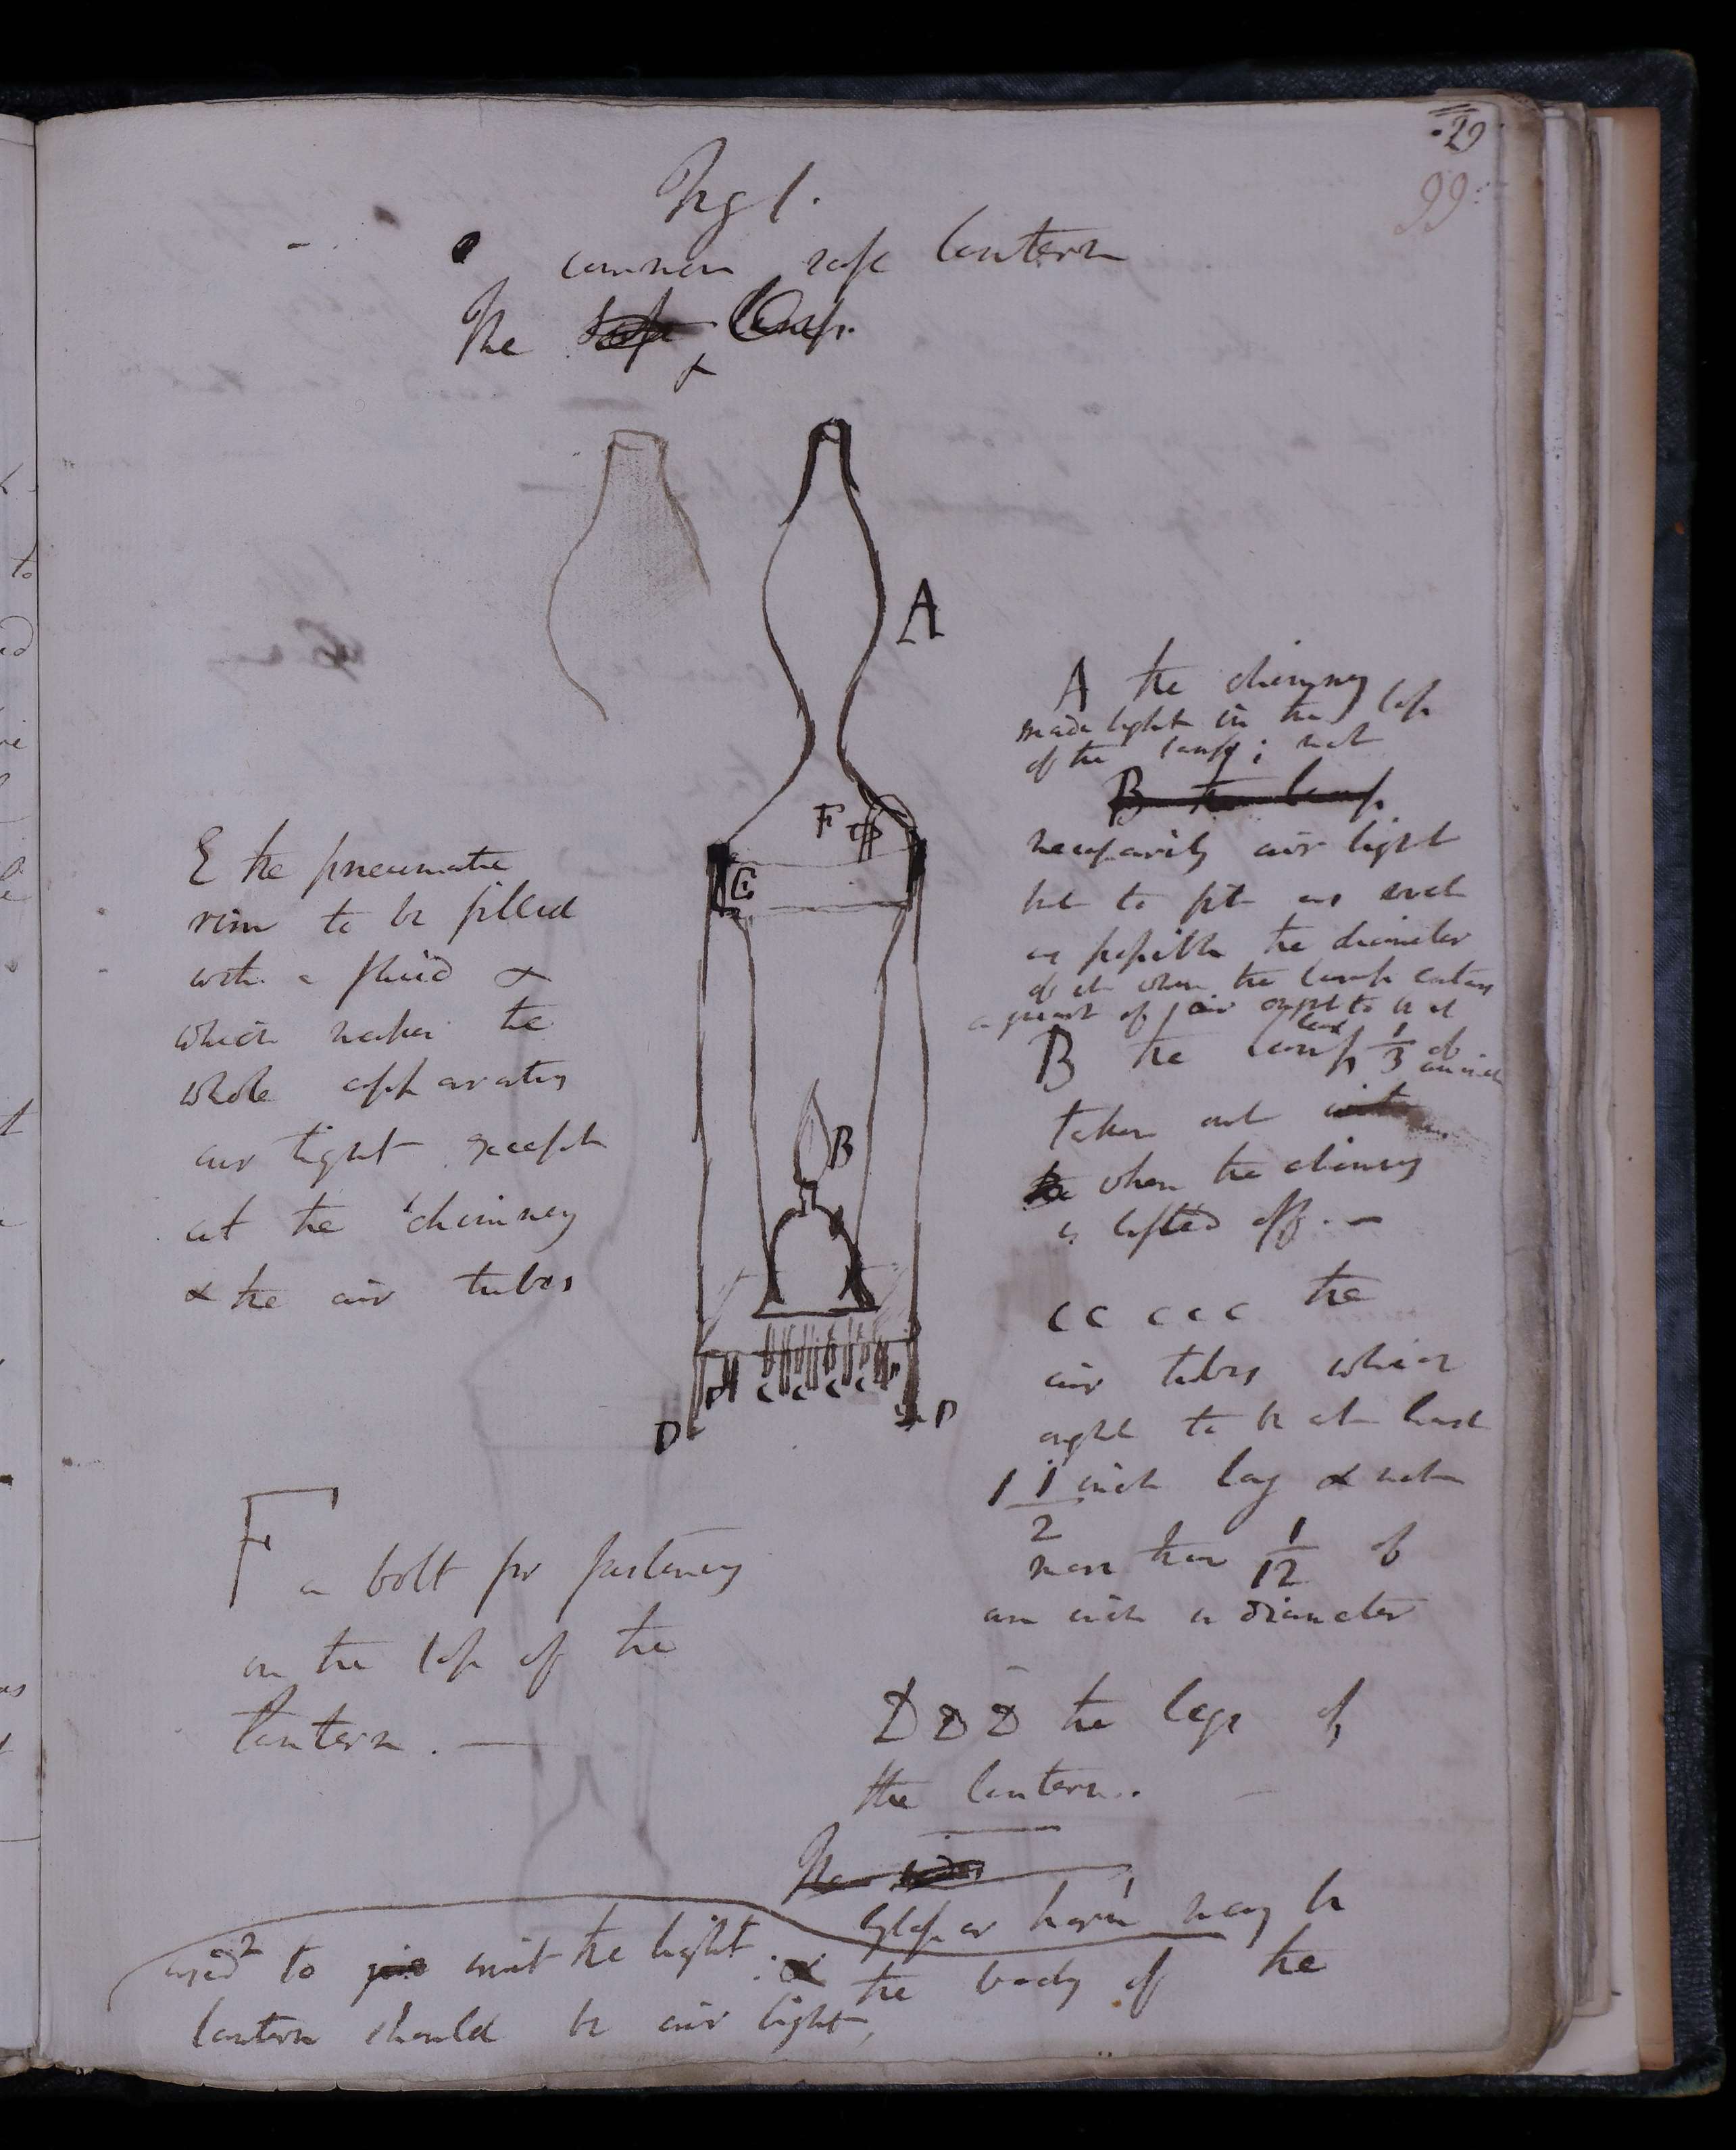 29
99
Fig 1.
common safe lantern
The safe lamp.
A
F
G
B
C C C C
D
D
A the chimney
made tight in the top
of the lamp; not
B the lamp
necessarily air tight
but to fit as exact
as possible the diameter
of it when the lamp enters
of air ought to be at
least
B the lamp 1/3 of
an inch
taken out
when the chimney
is lifted off. —
C C C C C the
air tubes which
ought to be at least
1 1/2 inch long & not
more than 1/12 of
an inch in diameter
D D D the legs of
the lantern.
The
glass or horn may be
used to emit the light. & the body of the
lantern should be air tight,
E the pneumatic
rim to be filled
with a fluid &
which makes the
whole apparatus
air tight except
at the chimney
& the air tubes
F
a bolt for fastening
on the top of the
lantern. —